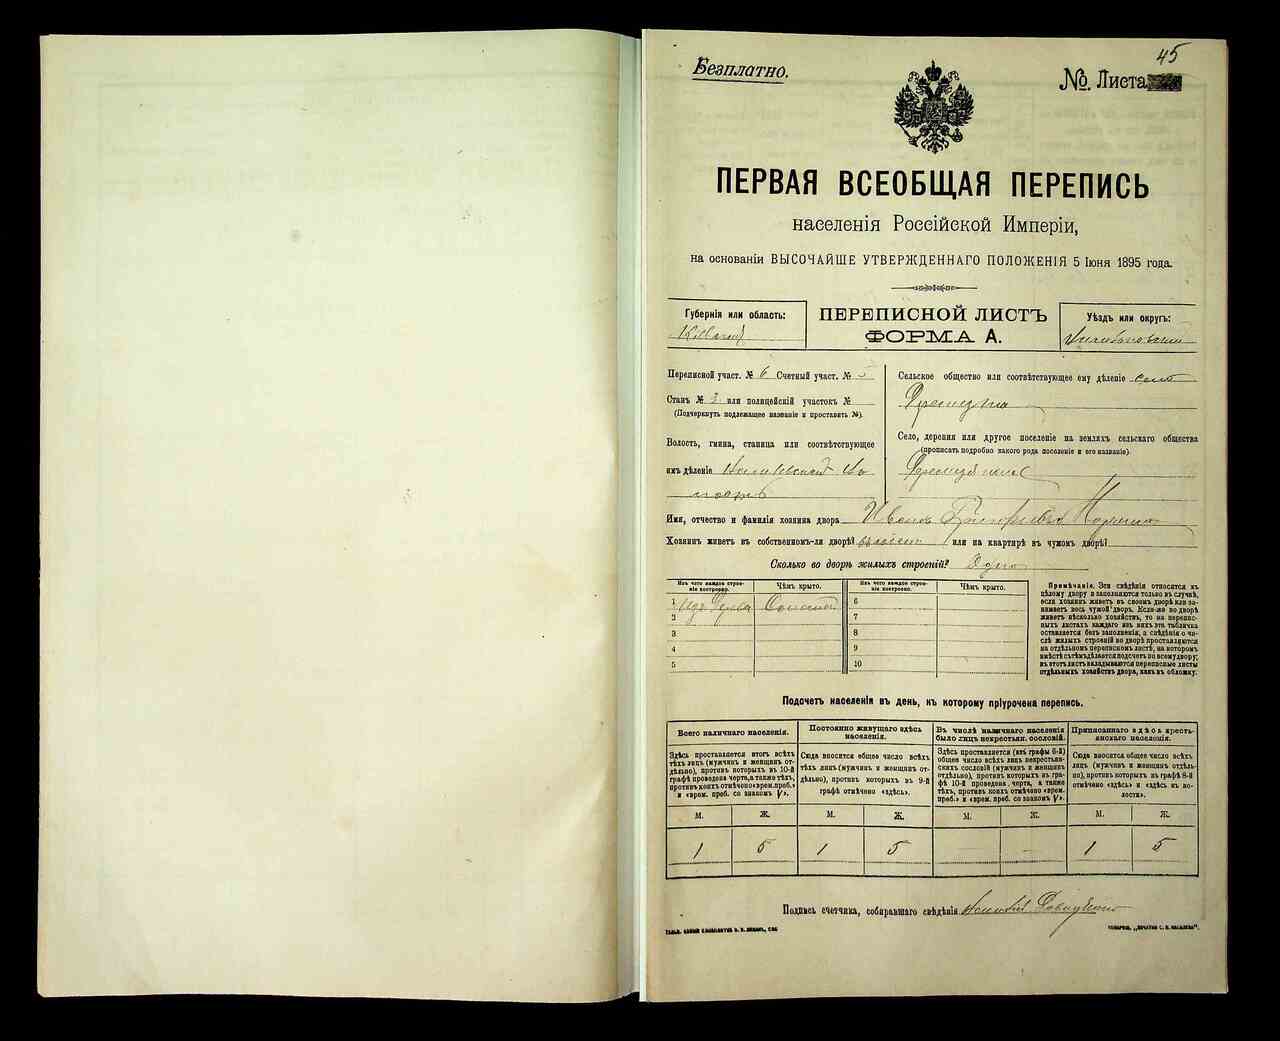 45
Безплатно.
№. Листа
ПЕРВАЯ ВСЕОБЩАЯ ПЕРЕПИСЬ
населенія Россійской Имперіи,
на основаніи ВЫСОЧАЙШЕ УТВЕРЖДЕННАГО ПОЛОЖЕНІЯ 5 Іюня 1895 года.
Губернія или область:
ПЕРЕПИСНОЙ ЛИСТЪ
ФОРМА А.
Уѣздъ или округъ:
Переписной участ. № 6 Счетный участ. № 5
Станъ № 2 или полицейскій участокъ №
(Подчеркнуть подлежащее названіе и проставить №).
Волость, гмина, станица или соотвѣтствующее
имъ дѣленіе
Сельское общество или соотвѣтствующее ему дѣленіе село
Село, деревня или другое поселеніе на земляхъ сельскаго общества
(прописать подробно какого рода поселеніе и его названіе).
Имя, отчество и фамилія хозяина двора Иванъ Григорьевъ
Хозяинъ живетъ въ собственномъ-ли дворѣ? или на квартирѣ въ чужомъ дворѣ?
Сколько во дворѣ жилыхъ строеній? Одно
Изъ чего каждое строе-
ніе построено.
Чѣмъ крыто.
Изъ чего каждое строе-
ніе построено.
Чѣмъ крыто.
1 Изъ дерева Соломой
2
3
4
5
6
7
8
9
10
Примѣчаніе. Эти свѣдѣнія относятся къ
цѣлому двору и заполняются только въ случаѣ,
если хозяинъ живетъ въ своемъ дворѣ или за-
нимаетъ весь чужой дворъ. Если-же во дворѣ
живетъ нѣсколько хозяйствъ, то на перепис-
ныхъ листахъ каждаго изъ нихъ эта табличка
оставляется безъ заполненія, а свѣдѣнія о чи-
слѣ жилыхъ строеній во дворѣ проставляются
на отдѣльномъ переписномъ листѣ, на которомъ
вмѣстѣ съ тѣмъ дѣлается подсчетъ по всему двору;
въ этотъ листъ вкладываются переписные листы
отдѣльныхъ хозяйствъ двора, какъ въ обложку.
Подсчетъ населенія въ день, къ которому пріурочена перепись.
Всего наличнаго населенія.
Постоянно живущаго здѣсь
населенія.
Въ числѣ наличнаго населенія
было лицъ некрестьян. сословій.
Приписаннаго здѣсь кресть-
янскаго населенія.
Здѣсь проставляется итогъ всѣхъ
тѣхъ лицъ (мужчинъ и женщинъ от-
дѣльно), противъ которыхъ въ 10-й
графѣ проведена черта, а также тѣхъ,
противъ коихъ отмѣчено «врем. преб.»
и «врем. преб. со знакомъ V».
Сюда вносится общее число всѣхъ
тѣхъ лицъ (мужчинъ и женщинъ от-
дѣльно), противъ которыхъ въ 9-й
графѣ отмѣчено «здѣсь».
Здѣсь проставляется (изъ графы 6-й)
общее число всѣхъ лицъ некрестьян-
скихъ сословій (мужчинъ и женщинъ
отдѣльно), противъ которыхъ въ гра-
фѣ 10-й проведена черта, а также
тѣхъ, противъ коихъ отмѣчено «врем.
преб.» и «врем. преб. со знакомъ V».
Сюда вносится общее число всѣхъ
лицъ (мужчинъ и женщинъ отдѣль-
но), противъ которыхъ въ графѣ 8-й
отмѣчено «здѣсь» и «здѣсь въ во-
лости».
М. Ж. М. Ж. М. Ж. М. Ж.
1 5 1 5 — — 1 5
Подпись счетчика, собиравшаго свѣдѣнія